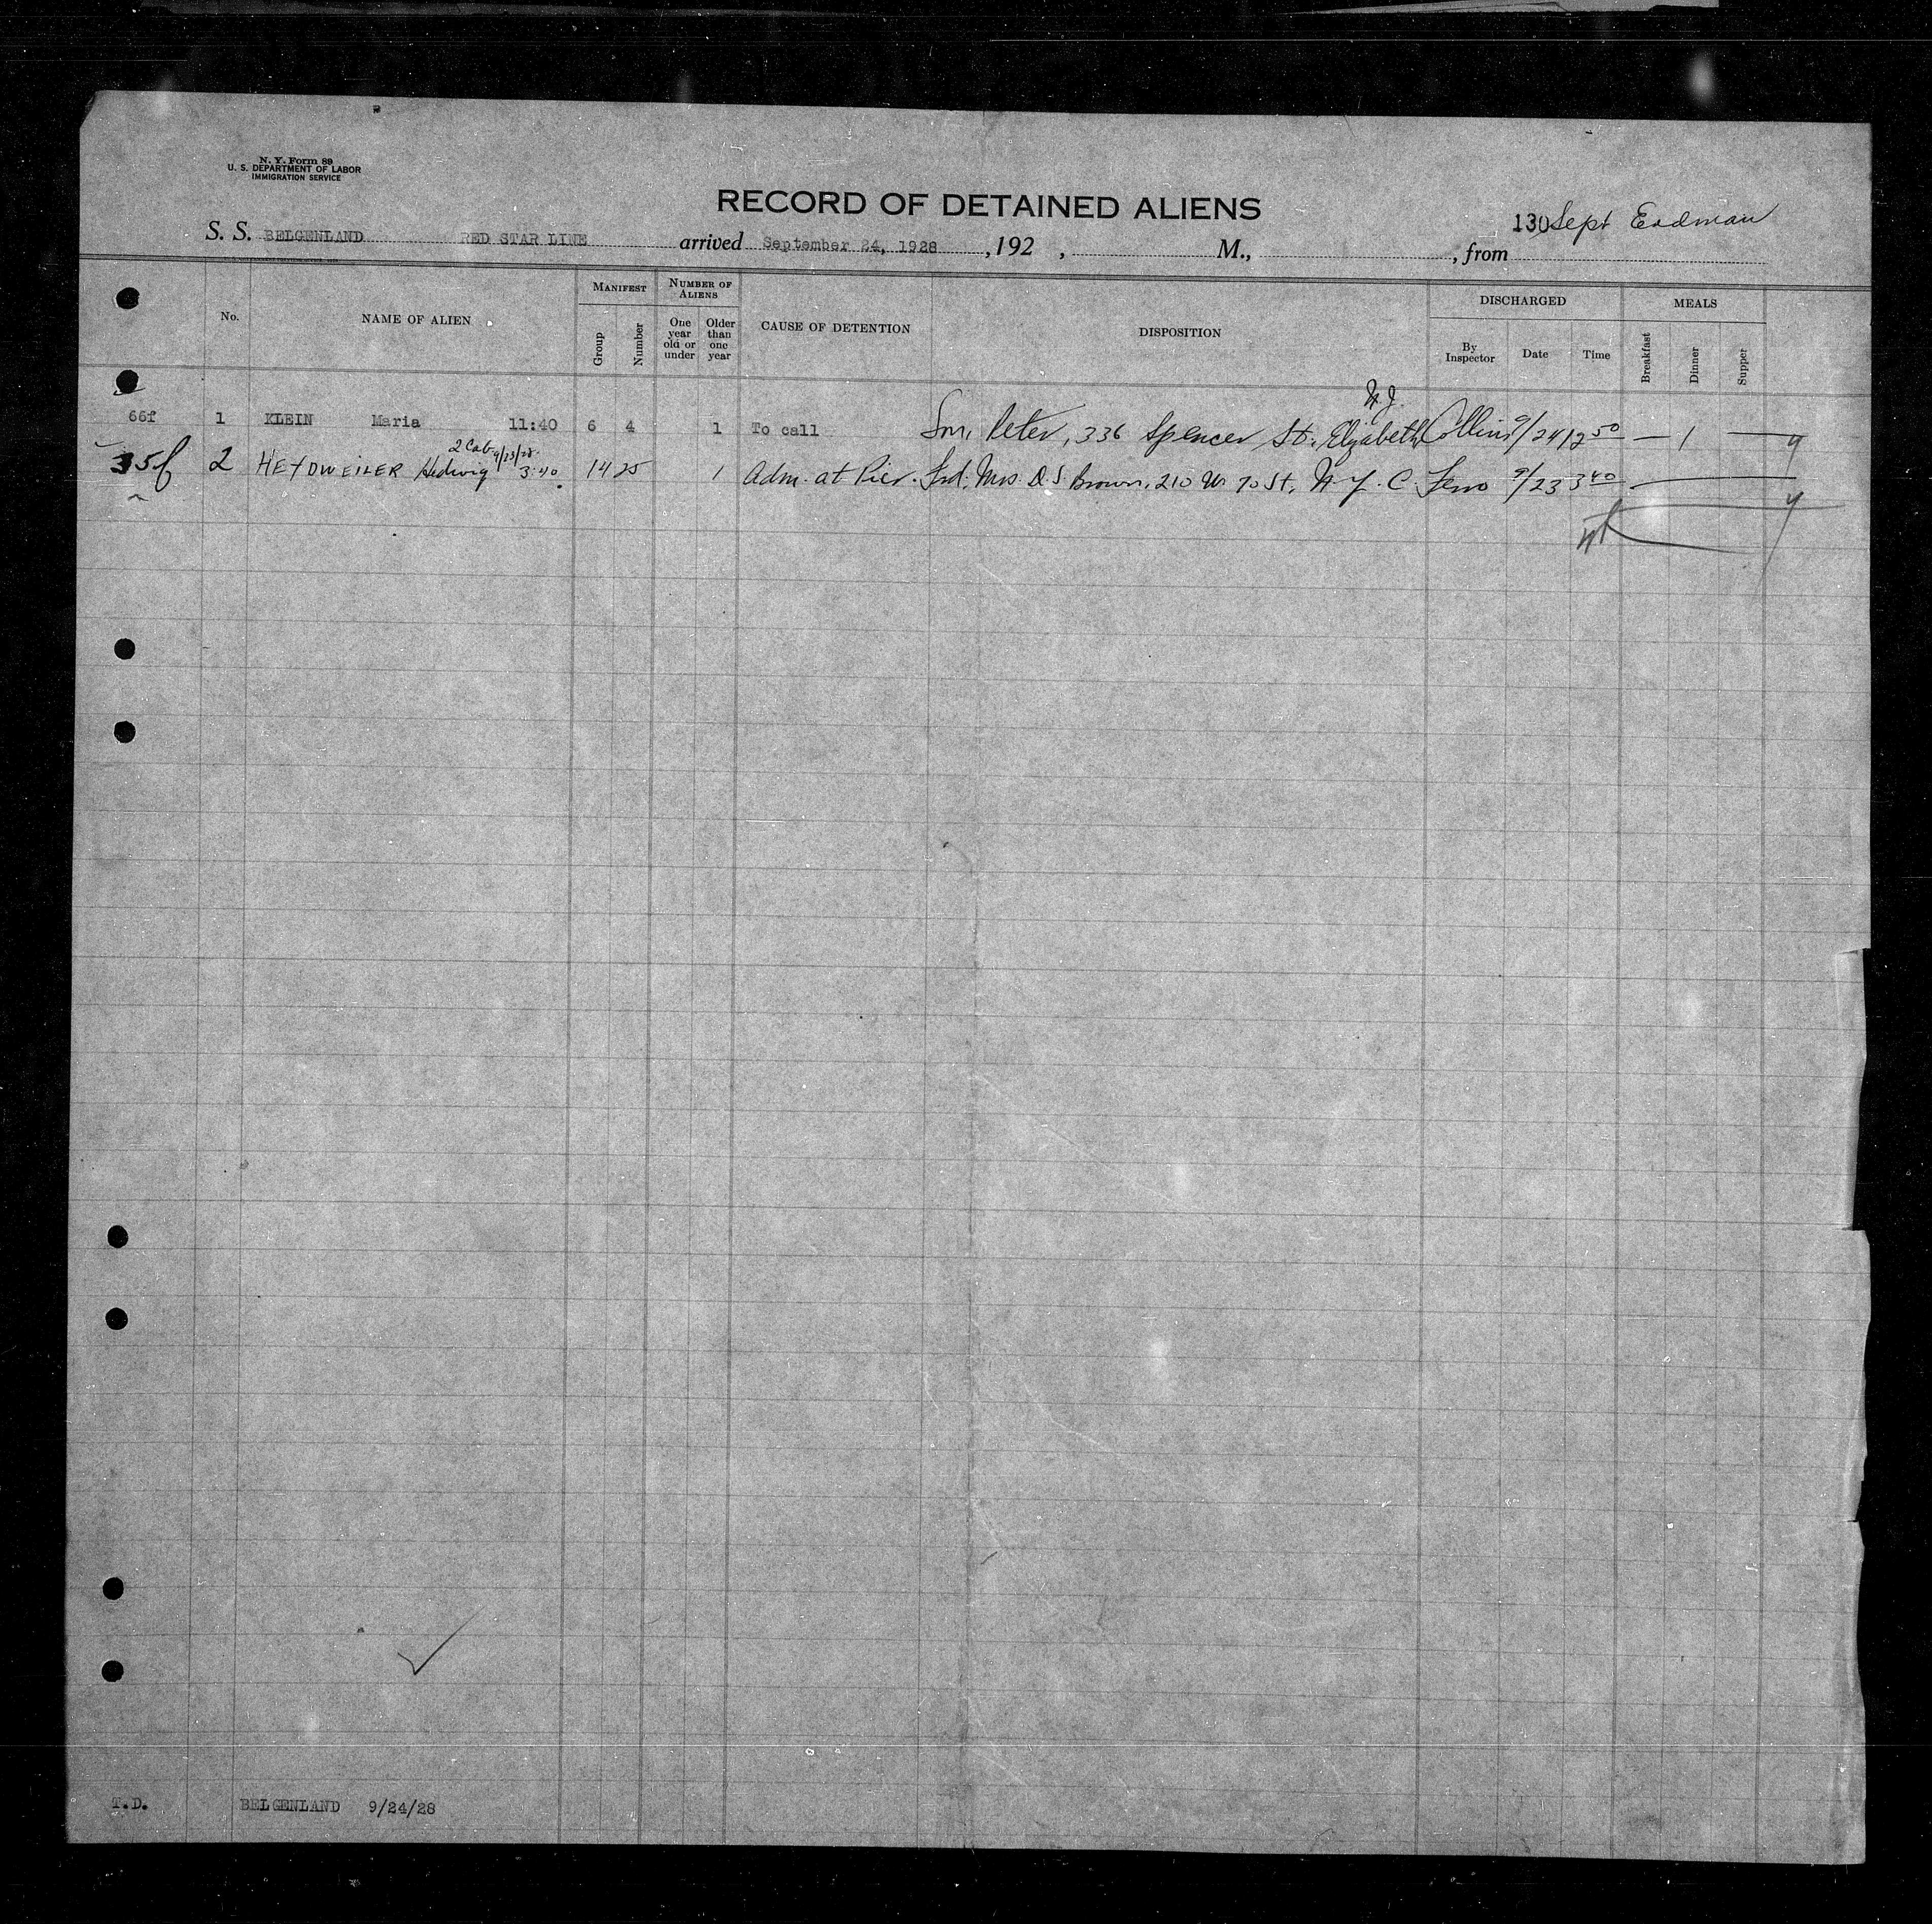 N. Y. Form 89
U. S. DEPARTMENT OF LABOR
IMMIGRATION SERVICE
RECORD OF DETAINED ALIENS
130 Sept Erdman
S. S. BELGENLAND RED STAR LINE arrived September 24, 1928 , 192 , M., , from
No.
NAME OF ALIEN
MANIFEST
Group
Number
NUMBER OF ALIENS
One year old or under
Older than one year
CAUSE OF DETENTION
DISPOSITION
DISCHARGED
By Inspector
Date
Time
MEALS
Breakfast
Dinner
Supper
N.J.
66f 1 KLEIN Maria 11:40 6 4 1 To call Son, Peter, 336 Spencer St., Elizabeth Collins 9/24 12 50 — 1 —
2 Cab 9/23/28
35f 2 HEYDWEILER Hedwig 3:40 14 25 1 Adm. at Pier. Frd. Mrs. D. S. Brown, 210 W 70 St, N. Y. C 9/23 3 40
T.D. BELGENLAND 9/24/28